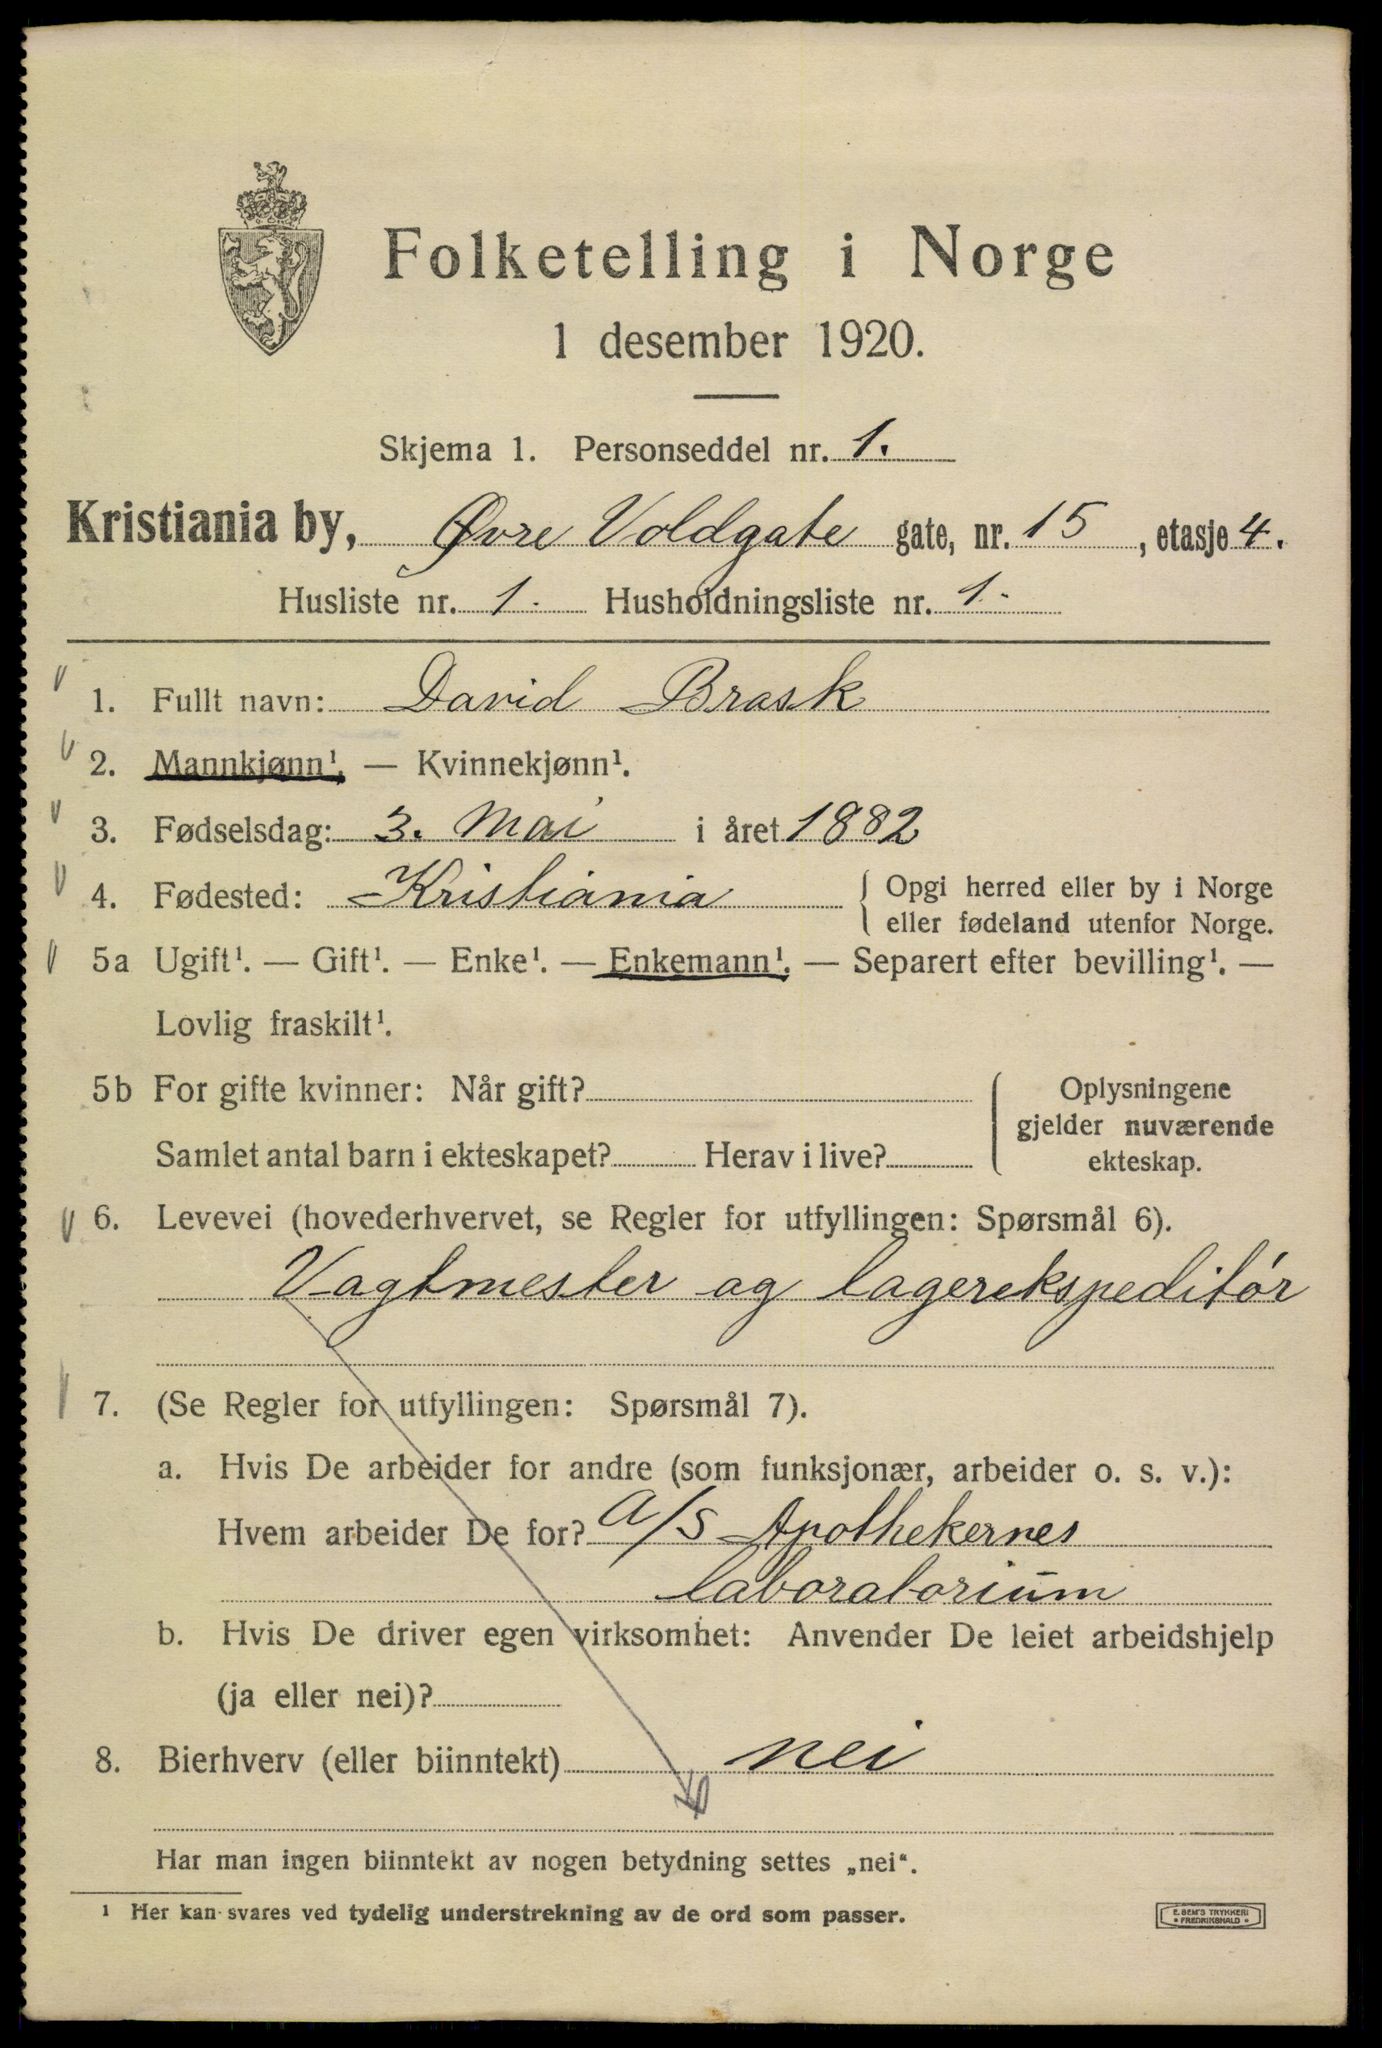 Folketelling i Norge
1 desember 1920.
Skjema 1. Personseddel nr. 1.
Kristiania by, Øvre Voldgate gate, nr. 15, etasje 4.
Husliste nr. 1. Husholdningsliste nr. 1.
1. Fullt navn: David Brask
2. Mannkjønn¹. — Kvinnekjønn¹.
3. Fødselsdag: 3. Mai i året 1882
4. Fødested: Kristiania { Opgi herred eller by i Norge
eller fødeland utenfor Norge.
5a Ugift¹. — Gift¹. — Enke¹. — Enkemann¹. — Separert efter bevilling¹. —
Lovlig fraskilt¹.
5b For gifte kvinner: Når gift?
Samlet antal barn i ekteskapet? Herav i live?
Oplysningene
gjelder nuværende
ekteskap.
6. Levevei (hovederhvervet, se Regler for utfyllingen: Spørsmål 6).
Vagtmester og lagerekspeditór
7. (Se Regler for utfyllingen: Spørsmål 7).
a. Hvis De arbeider for andre (som funksjonær, arbeider o. s. v.):
Hvem arbeider De for? A/S Apothekernes
laboratorium
b. Hvis De driver egen virksomhet: Anvender De leiet arbeidshjelp
(ja eller nei)?
8. Bierhverv (eller biinntekt) nei
Har man ingen biinntekt av nogen betydning settes „nei“.
¹ Her kan svares ved tydelig understrekning av de ord som passer.
E. SEM'S TRYKKERI
• FREDRIKSHALD •